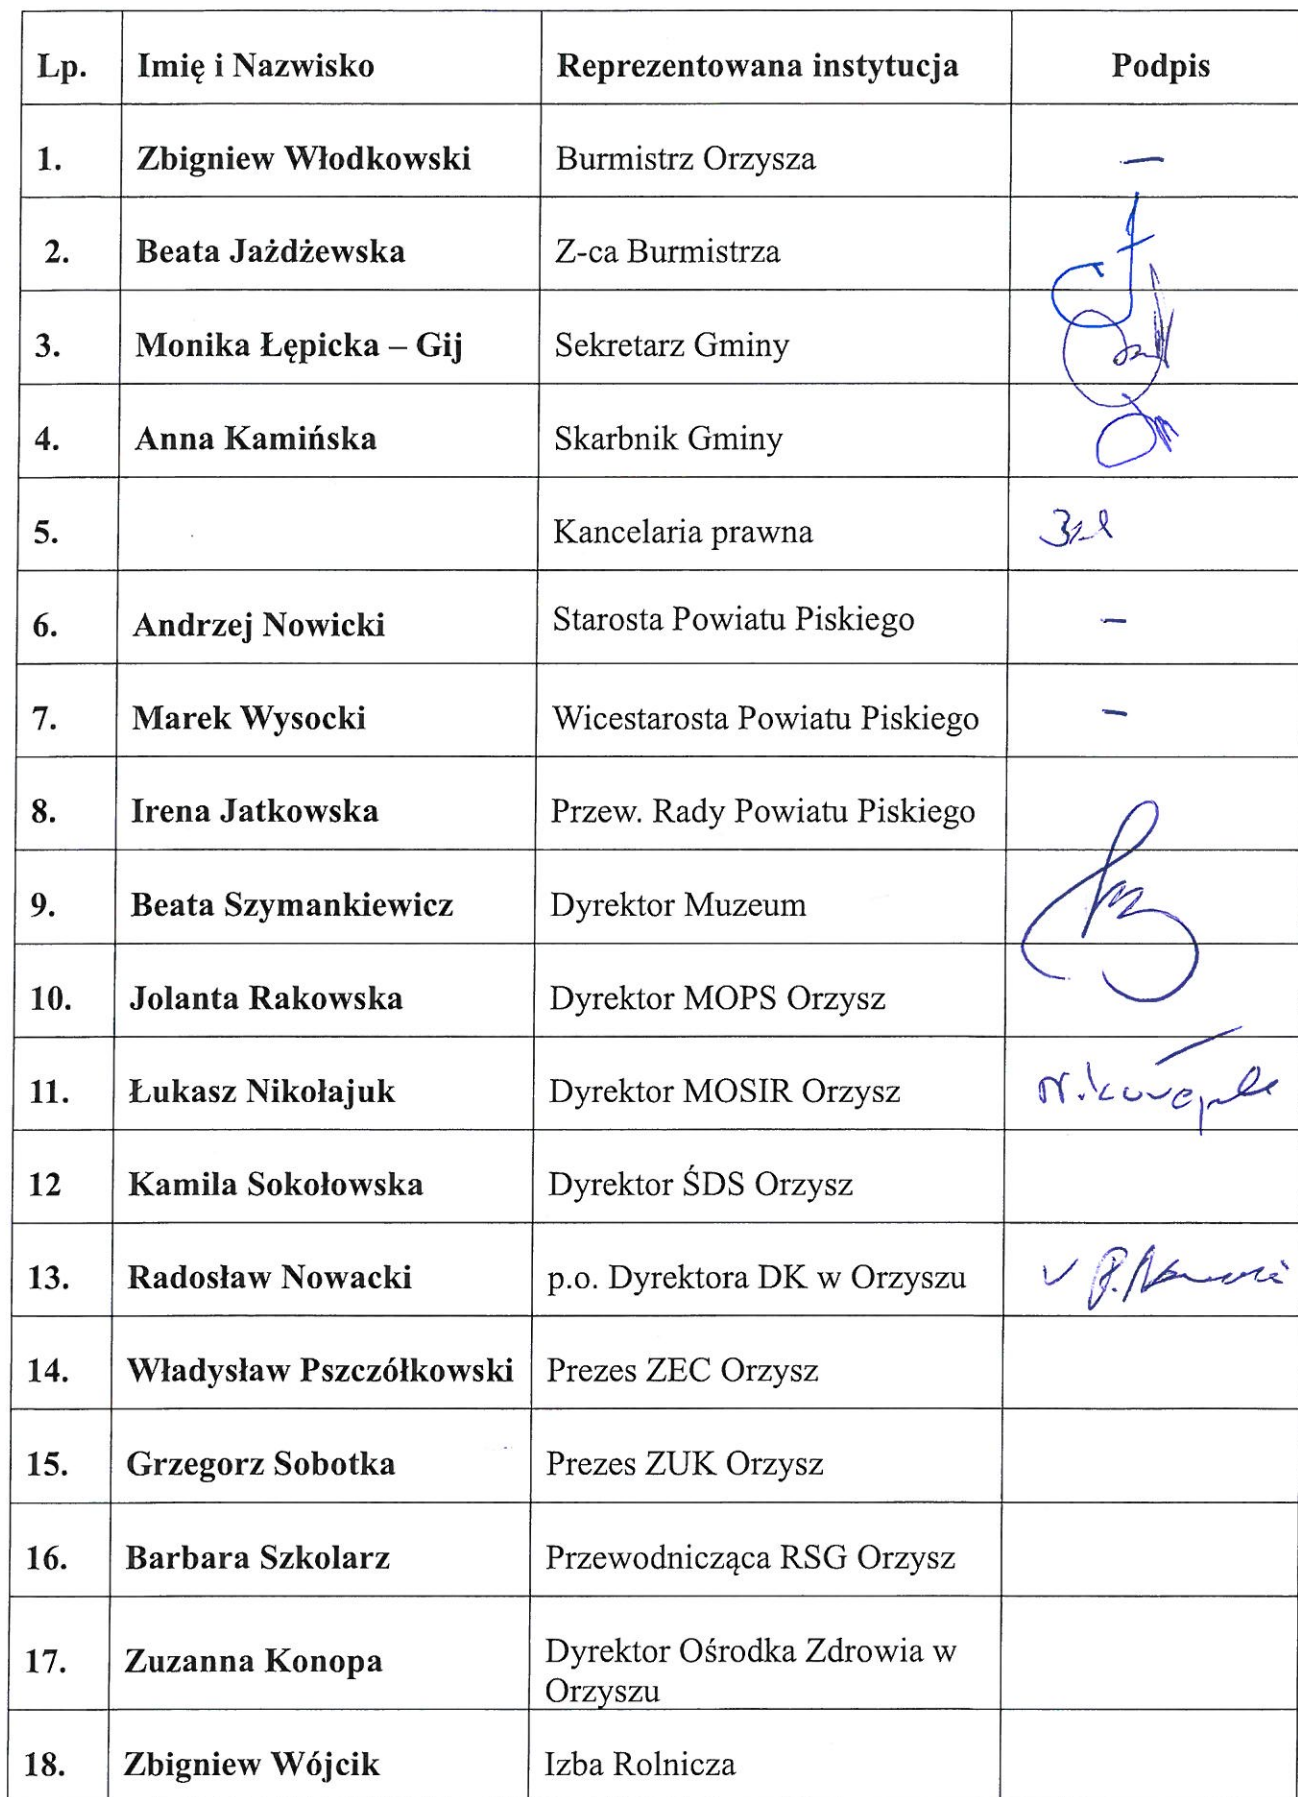 Lp. Imię i Nazwisko Reprezentowana instytucja Podpis
1. Zbigniew Włodkowski Burmistrz Orzysza –
2. Beata Jażdżewska Z-ca Burmistrza
3. Monika Łępicka – Gij Sekretarz Gminy
4. Anna Kamińska Skarbnik Gminy
5. Kancelaria prawna
6. Andrzej Nowicki Starosta Powiatu Piskiego –
7. Marek Wysocki Wicestarosta Powiatu Piskiego –
8. Irena Jatkowska Przew. Rady Powiatu Piskiego
9. Beata Szymankiewicz Dyrektor Muzeum
10. Jolanta Rakowska Dyrektor MOPS Orzysz
11. Łukasz Nikołajuk Dyrektor MOSIR Orzysz
12 Kamila Sokołowska Dyrektor ŚDS Orzysz
13. Radosław Nowacki p.o. Dyrektora DK w Orzyszu
14. Władysław Pszczółkowski Prezes ZEC Orzysz
15. Grzegorz Sobotka Prezes ZUK Orzysz
16. Barbara Szkolarz Przewodnicząca RSG Orzysz
17. Zuzanna Konopa Dyrektor Ośrodka Zdrowia w
Orzyszu
18. Zbigniew Wójcik Izba Rolnicza